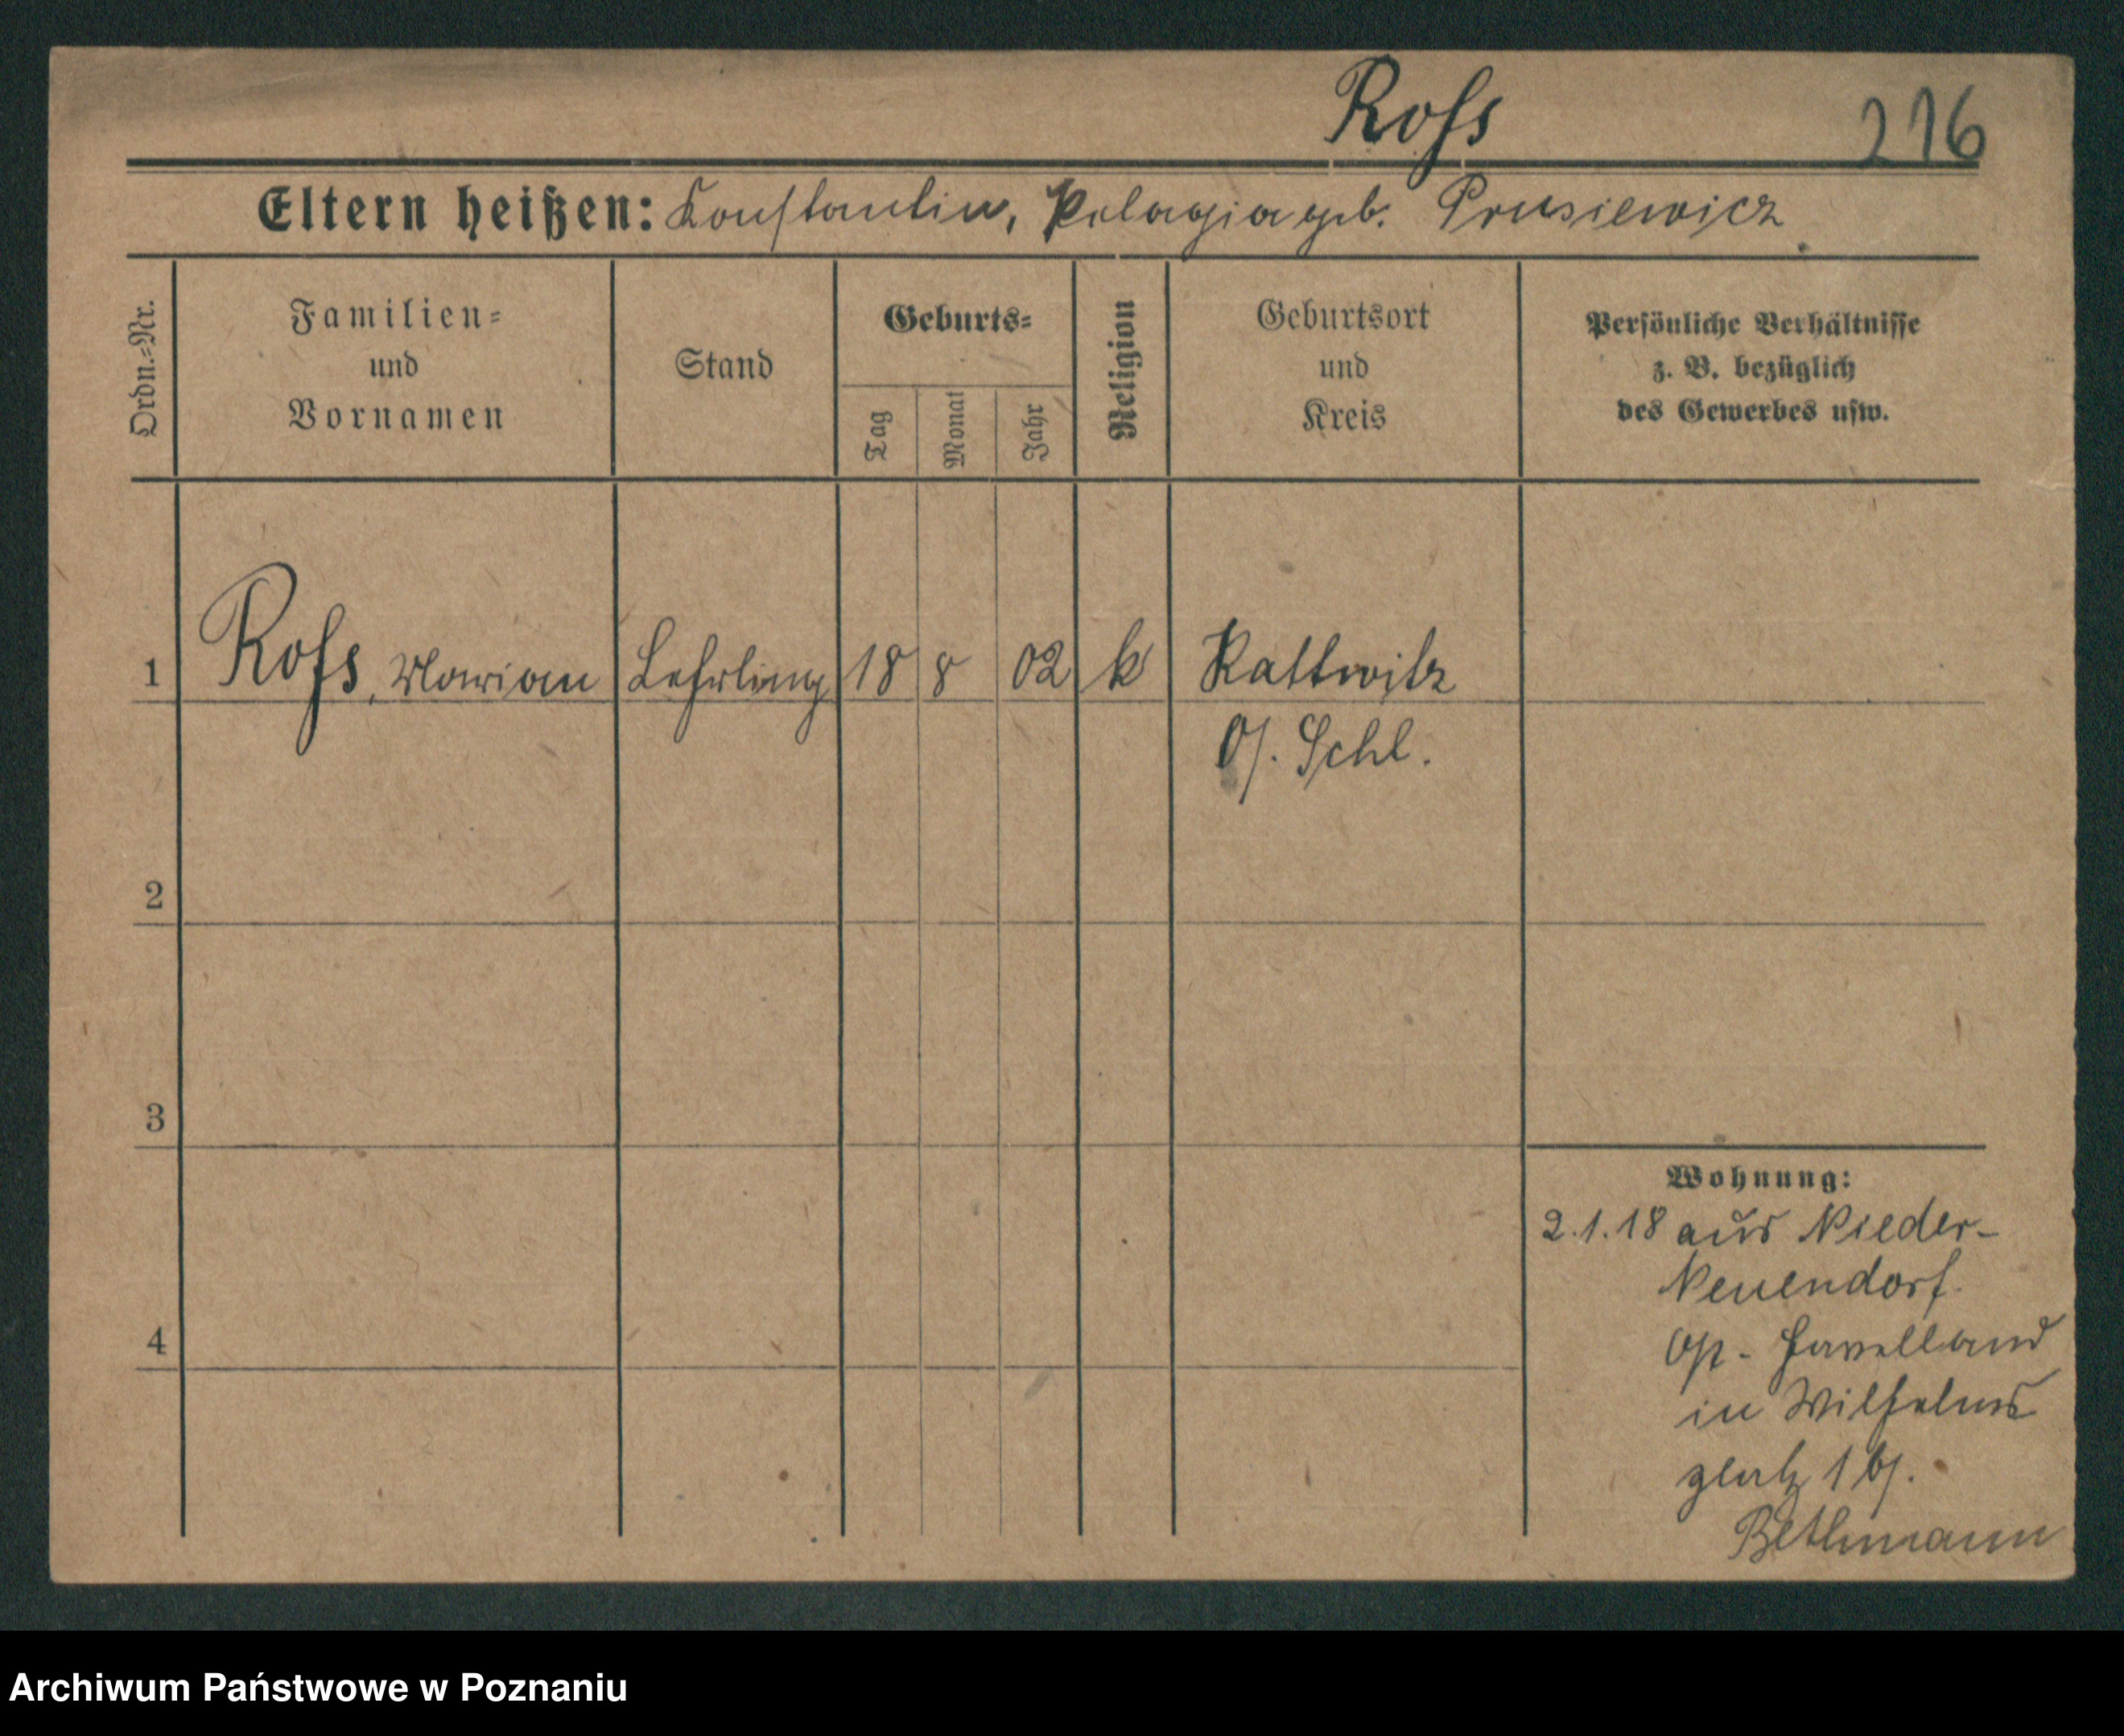 Roſs 216
Eltern heißen: Konstantin, Pelagia geb. Prusiewicz
Ordn.=Nr.
Familien=
und
Vornamen
Stand
Geburts=
Tag
Monat
Jahr
Religion
Geburtsort
und
Kreis
Persönliche Verhältnisse
z. B. bezüglich
des Gewerbes usw.
1 Roſs, Marian Lehrling 18 8 02 k Kattwitz
O/. Schl.
2
3
4
Wohnung:
2.1.18 aus Nieder-
Neuendorf
Havelland
in Wilhelms
platz 1 b/.
Bethmann
Archiwum Państwowe w Poznaniu